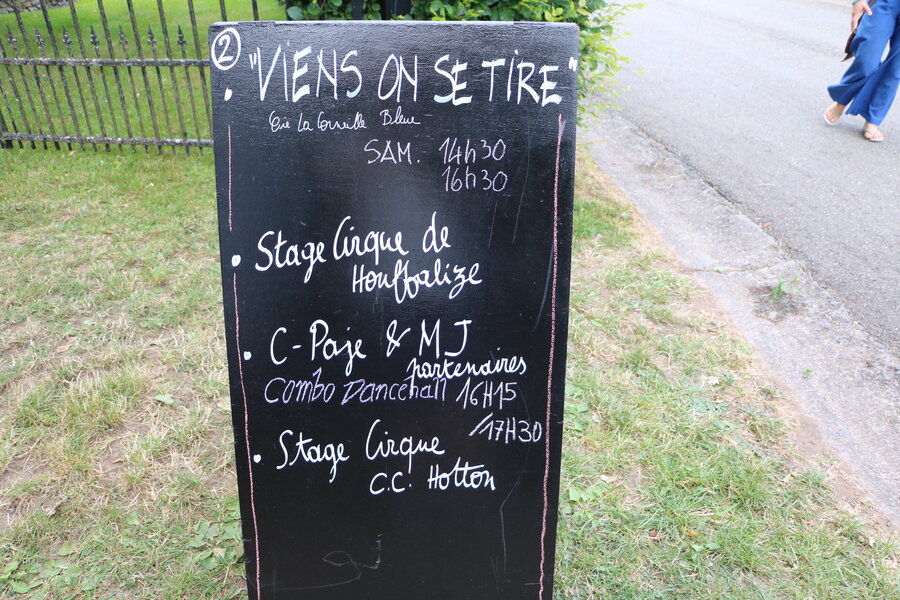 2
"VIENS ON SE TIRE"
Cie La Corneille Bleue
SAM. 14h30
16h30
Stage Cirque de
Houffalize
C-Paje & MJ
partenaires
Combo Dancehall 16H15
/17H30
Stage Cirque
C.C. Hotton